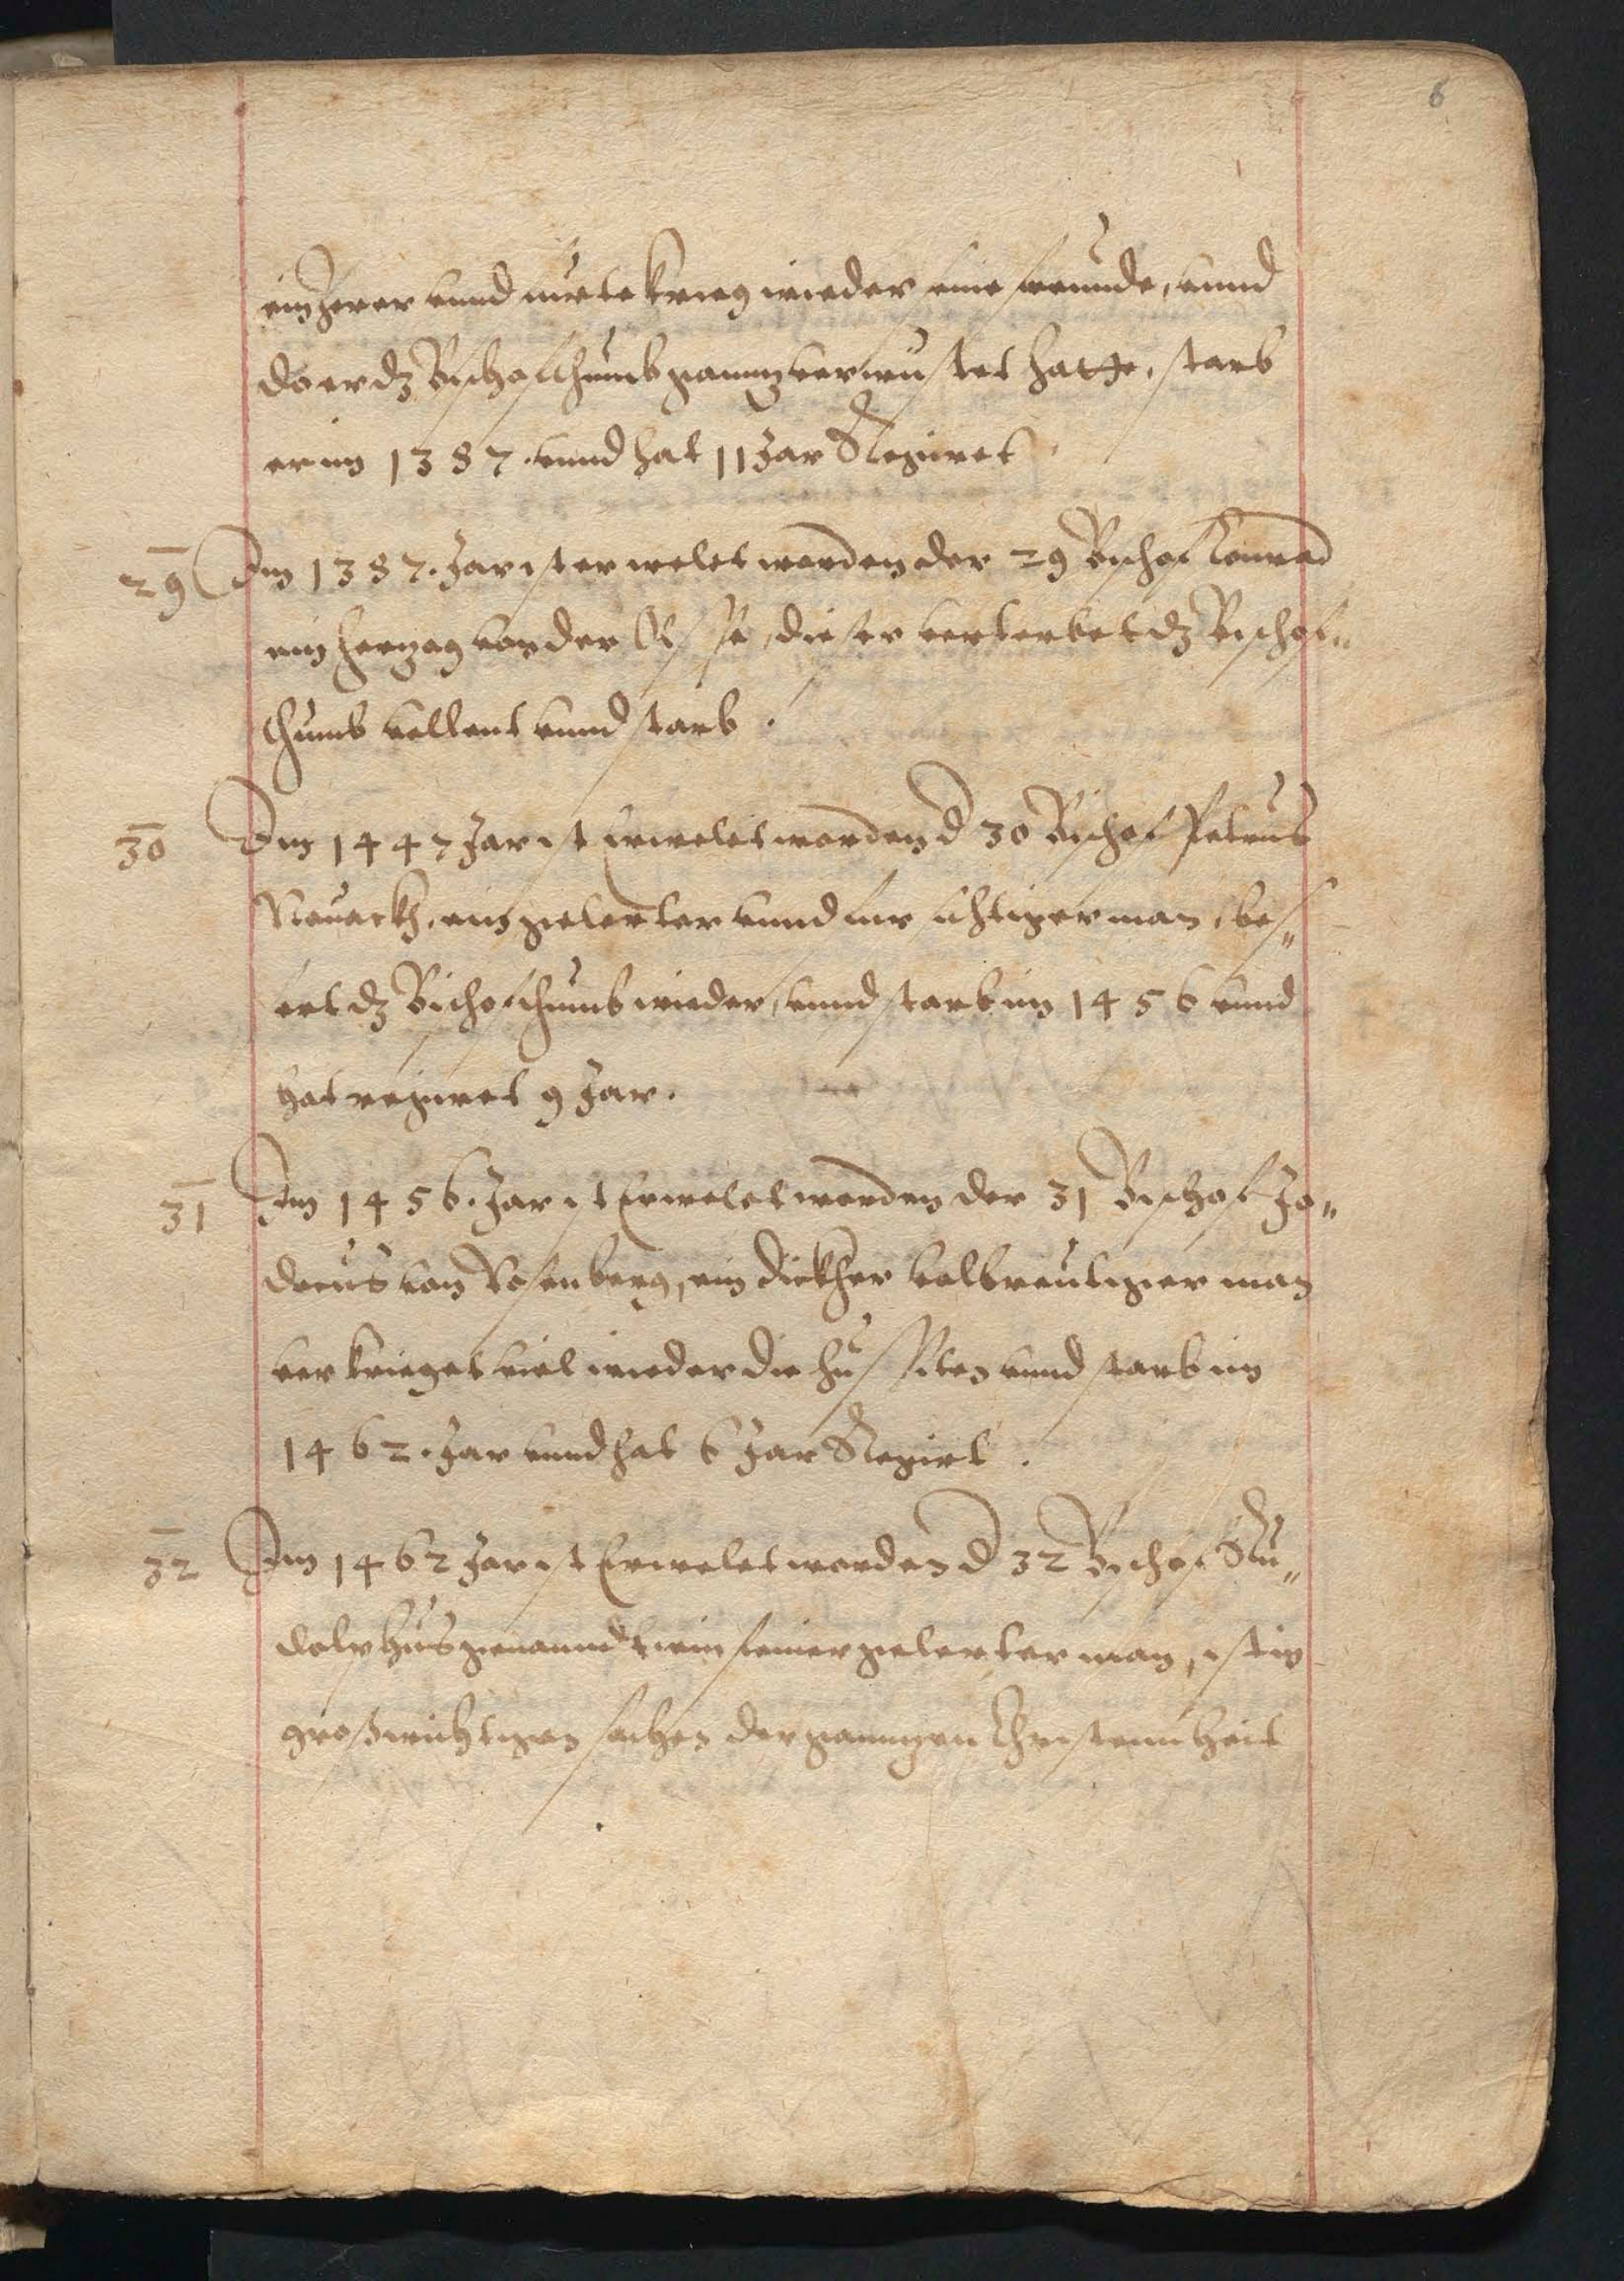 6
ein Herer vnnd furte krieg wieder seine freunde, vnnd
do er dz Bischofthumb gannz verwustet hatte, starb
er im 1387. vnnd hat 11 Jar Regiret.
29 Im 1387. Jar ist erwelet worden der 29 Bischof Conrad
ein herzog von der Olsse, dieser verterbet dz Bischof„
thumb vollent vnnd starb.
30 Im 1447 Jar ist Erwelet worden d 30 Bischof Petrus
Nouack, ein gelerter vnnd fursichtiger man, bes„
ert dz Bischofthumb wieder, vnnd starb im 1456 vnnd
hat regiret 9 Jar.
31 Im 1456. Jar ist Erwelet worden der 31 Bischof Jo„
docus von Rosenberg, ein dicker man
der krieget viel wieder die hussiten vnnd starb im
1462. Jar vnnd hat 6 Jar Regirt.
32 Im 1462 Jar ist Erwelet worden d 32 Bischof Ru„
dolphus genanndt ein feiner gelerter man, ist in
großwichtigen sachen der gannzen Christennheit